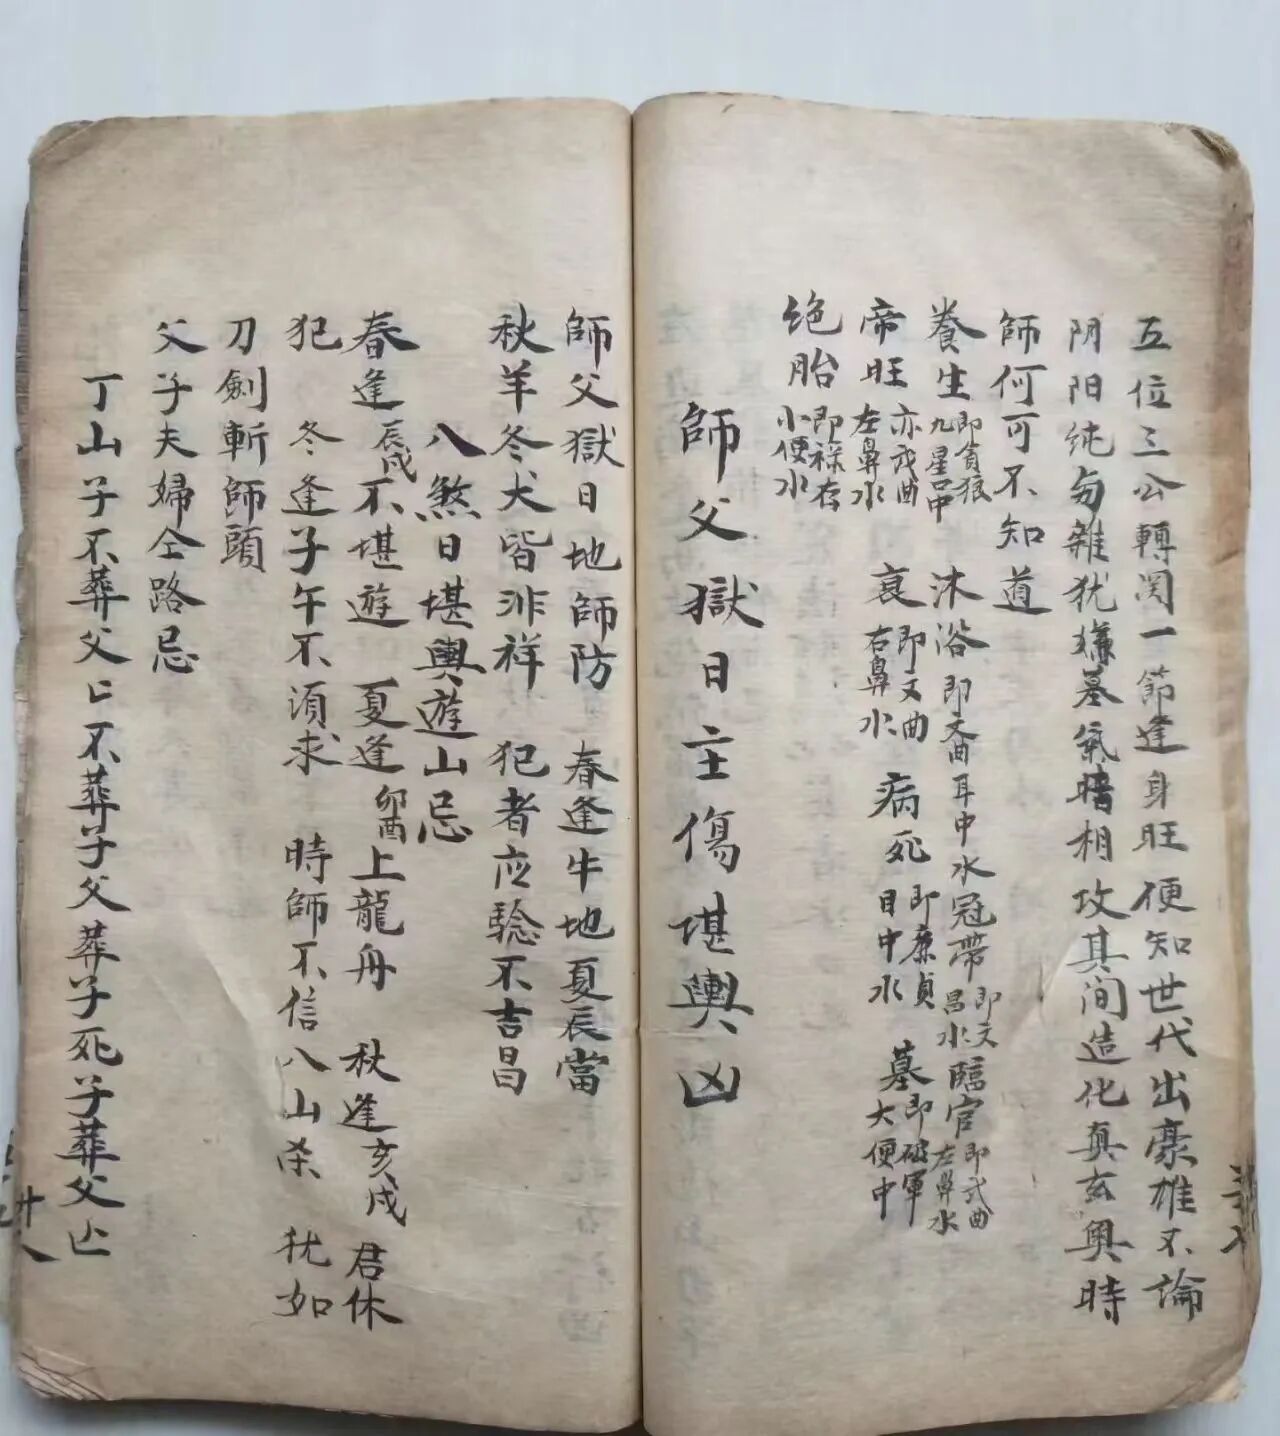 五位三公轉関一節逢身旺便知世代出豪雄不論
阴阳纯勾雜犹嫌墓氣暗相攻其间造化真玄奥時
師何可不知道
養生即貪狼九星口中 沐浴即文曲耳中水 冠帶即文昌水 臨官即武曲左鼻水
帝旺亦武曲左鼻水 衰即文曲右鼻水 病死即廉貞目中水 墓即破軍大便中
绝胎即禄存小便水
師父獄日主傷堪輿凶
師父獄日地師防 春逢牛地夏辰當
秋羊冬犬皆非祥 犯者应驗不吉昌
八煞日堪輿遊山忌
春逢辰戌不堪遊 夏逢卯酉上龍舟 秋逢亥戌君休
犯 冬逢子午不須求 時師不信八山杀 犹如
刀劍斬師頭
父子夫婦仝路忌
丁山子不葬父亡不葬子父葬子死子葬父亡
十八